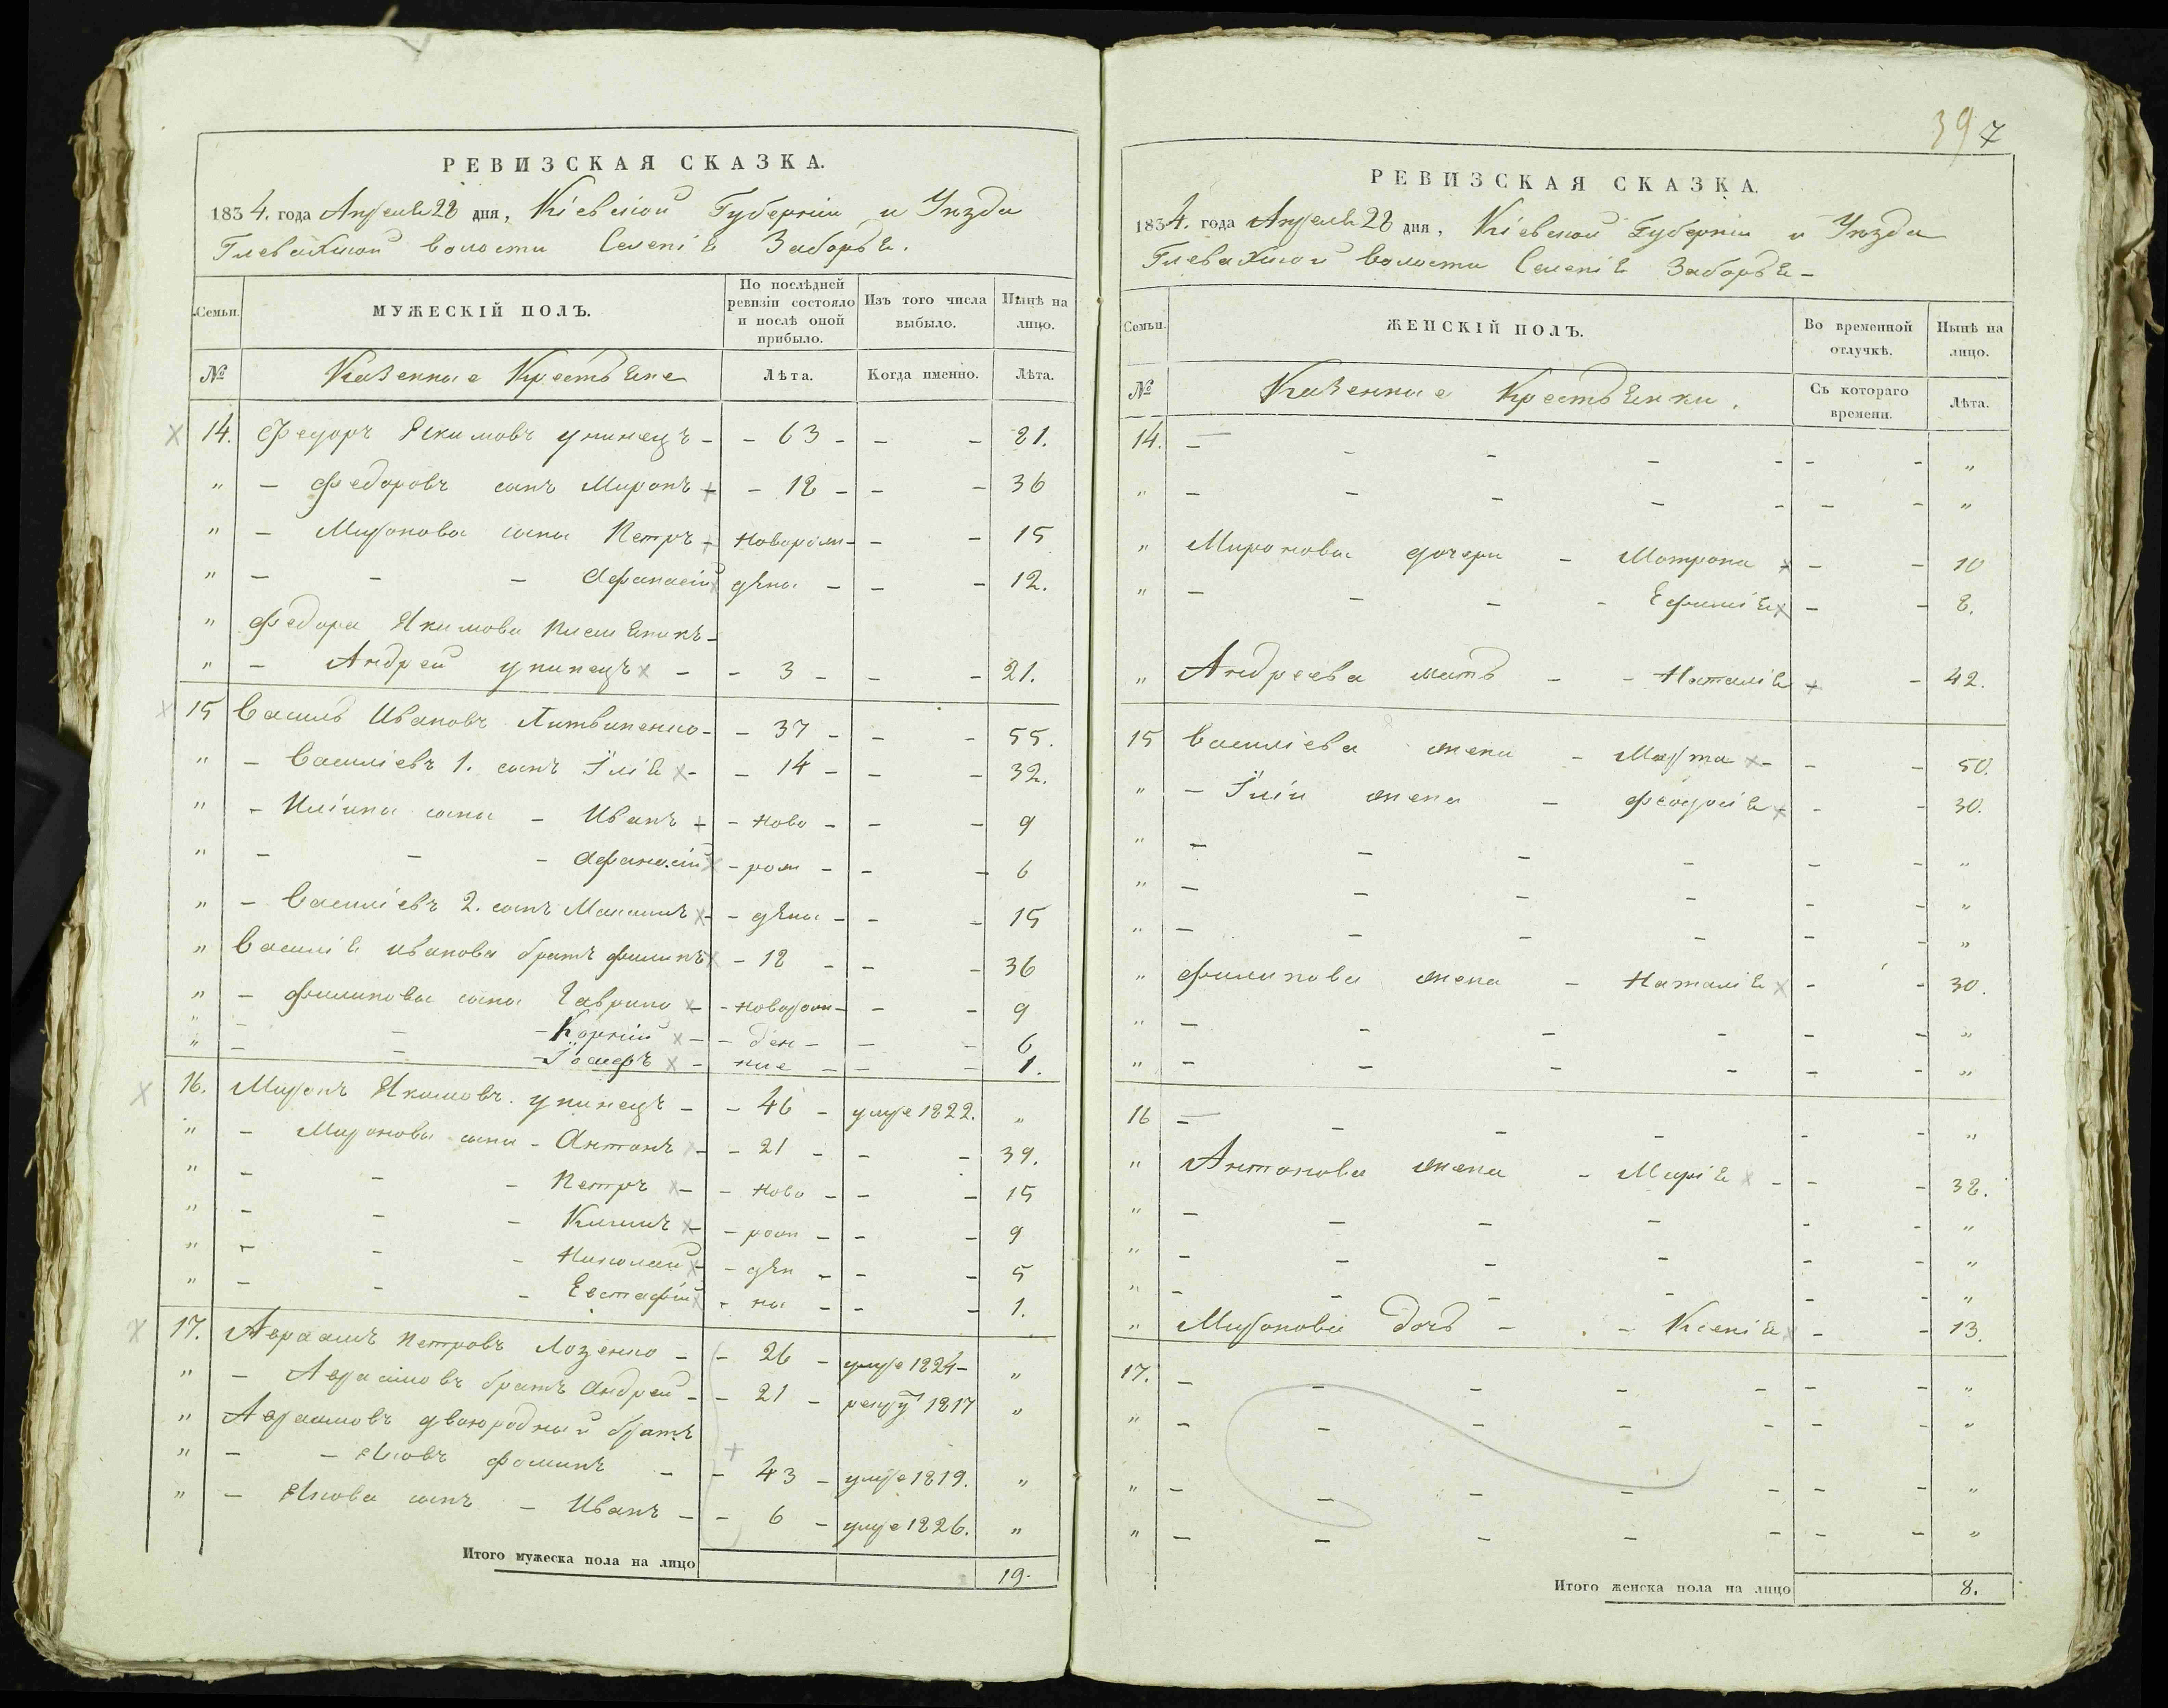 39 7
РЕВИЗСКАЯ СКАЗКА.
1834. года Апреля 28 дня, Кіевской Губерніи и Уезда
Глевахской волости Селенія Заборья.
Семьи. МУЖЕСКІЙ ПОЛЪ. По послѣдней ревизіи состояло и послѣ оной прибыло. Изъ того числа выбыло. Нынѣ на лицо.
№ Казенные Крестьяне Лѣта. Когда именно. Лѣта.
14. Федоръ Якимовъ - 63 - - - 21.
" - Федоровъ сынъ Миронъ - - 18 - - - 36
" - Мироновы сыны Петръ - Новорож- - - 15
" - - - Афанасій дены - - - 12.
" Федора Якимова племяникъ -
" - Андрей - - 3 - - - 21.
15 Василь Ивановъ Литвиненко - - 37 - - - 55.
" - Василіевъ 1. сынъ Ілія - - 14 - - - 32.
" - Иліины сыны - Иванъ - - Ново - - - 9
" - - - Афанасій - рож - - - 6
" - Василіевъ 2. сынъ Максимъ - - дены - - - 15
" Василія Иванова братъ Филипъ - 18 - - - 36
" - Филиповы сыны Гаврило - - Новорож- - 9
" - - - Корній - - ден - - - 6
" - - - Іосифъ - ние - - - 1.
16. Миронъ Якимовъ - - 46 - умре 1822. "
" - Мироновы сыны - Антонъ - - 21 - - - 39.
" - - - Петръ - - Ново - - - 15
" - - - Климъ - - рож - - - 9
" - - - Николай - - ден - - - 5
" - - - Евстафій - ны - - - 1.
17. Авраамъ Петровъ Лозенко - - 26 - умре 1824 - "
" - Авраамовъ братъ Андрей - - 21 - рекру 1817 "
" Авраамовъ двоюродный братъ
" - - Яковъ Фоминъ - - 43 - умре 1819. "
" - Якова сынъ - Иванъ - - 6 - умре 1826. "
Итого мужеска пола на лицо 19.
РЕВИЗСКАЯ СКАЗКА.
1834. года Апреля 28 дня, Кіевской Губерніи и Уезда
Глевахской волости Селенія Заборья -
Семьи. ЖЕНСКІЙ ПОЛЪ. Во временной отлучкѣ. Нынѣ на лицо.
№ Казенные Крестьянки. Съ котораго времени. Лѣта.
14. - - - - - - - "
" - - - - - - - "
" Мироновы дочери - Мотрона - - 10
" - - - - Ефимія - - 8.
" Андреева мать - - Наталія - 42.
15 Василіева жена - Марта - - - 50.
" - Іліи жена - Феодосія - - 30.
" - - - - - - "
" - - - - - - "
" - - - - - - "
" Филипова жена - Наталія - - 30.
" - - - - - - "
" - - - - - - "
16 - - - - - - "
" Антонова жена - Марія - - - 38.
" - - - - - - "
" - - - - - - "
" - - - - - - "
" Миронова дочь - - Ксенія - - 13.
17. - - - - - - - "
" - - - - - - - "
" - - - - - - - "
" - - - - - - - "
Итого женска пола на лицо 8.